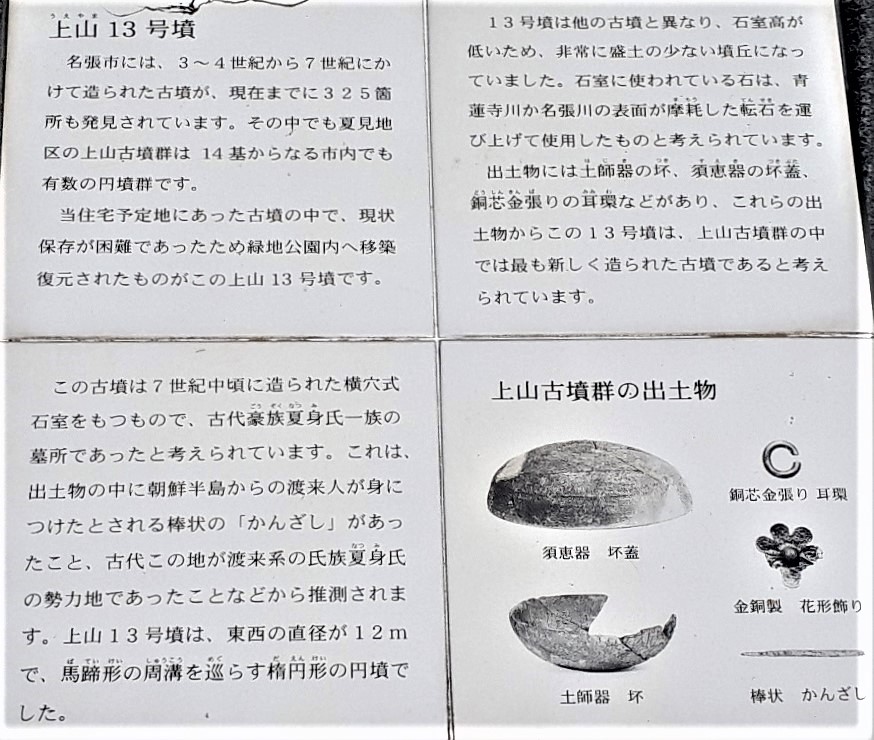 うえやま
上山 13 号墳
名張市には、３～４世紀から７世紀にか
けて造られた古墳が、現在までに３２５箇
所も発見されています。その中でも夏見地
区の上山古墳群は 14 基からなる市内でも
有数の円墳群です。
当住宅予定地にあった古墳の中で、現状
保存が困難であったため緑地公園内へ移築
復元されたものがこの上山 13 号墳です。
この古墳は７世紀中頃に造られた横穴式
石室をもつもので、古代豪族夏身氏一族の
ごう ぞく なつ み
墓所であったと考えられています。これは、
出土物の中に朝鮮半島からの渡来人が身に
つけたとされる棒状の「かんざし」があっ
たこと、古代この地が渡来系の氏族夏身氏
なつ み
の勢力地であったことなどから推測されま
す。上山１３号墳は、東西の直径が１２ｍ
で、馬蹄形の周溝を巡らす楕円形の円墳で
ば てい けい しゅうこう めぐ だ えん けい
した。
１３号墳は他の古墳と異なり、石室高が
低いため、非常に盛土の少ない墳丘になっ
ていました。石室に使われている石は、青
蓮寺川か名張川の表面が摩耗した転石を運
ま もう てん せき
び上げて使用したものと考えられています。
出土物には土師器の坏、須恵器の坏蓋、
は じ き つき す え き つき ぶた
銅芯金張りの耳環などがあり、これらの出
どう しん きん ば みみ わ
土物からこの１３号墳は、上山古墳群の中
では最も新しく造られた古墳であると考え
られています。
上山古墳群の出土物
須恵器 坏蓋
土師器 坏
銅芯金張り 耳環
金銅製 花形飾り
棒状 かんざし